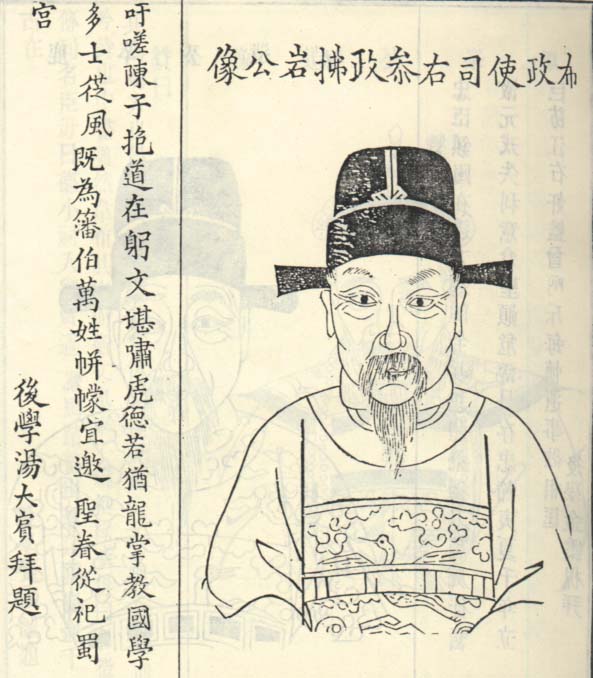 布政使司右叅政拂岩公像
吁嗟陳子抱道在躬文堪嘯虎徳若猶龍掌教國學
多士從風既為籓伯萬姓帡幪宜邀聖眷從祀蜀
宫
後學湯大賓拜題